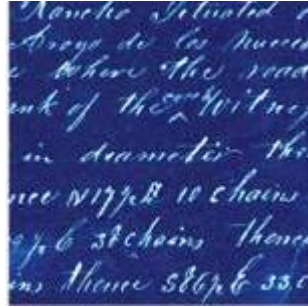 Rancho Situated
Arroyo de los Nueces
where the road
nk of the Witne
in diameter the
nce N17½E 10 chains
½ E 38 chains thence
ins thence S86½E 33.